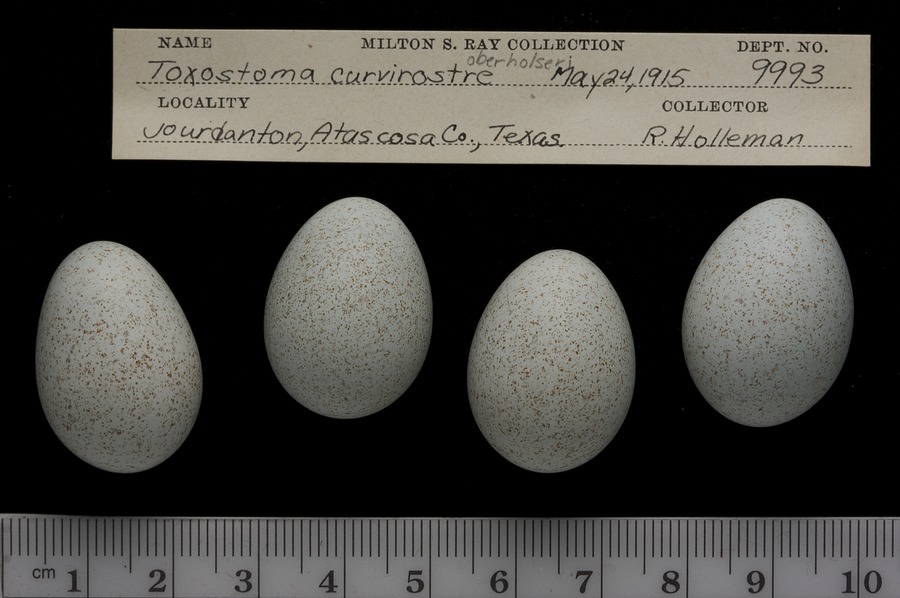 NAME MILTON S. RAY COLLECTION DEPT. NO.
oberholseri
Toxostoma curvirostre May 24, 1915 9993
LOCALITY COLLECTOR
Jourdanton, Atascosa Co., Texas R. Holleman
cm 1 2 3 4 5 6 7 8 9 10